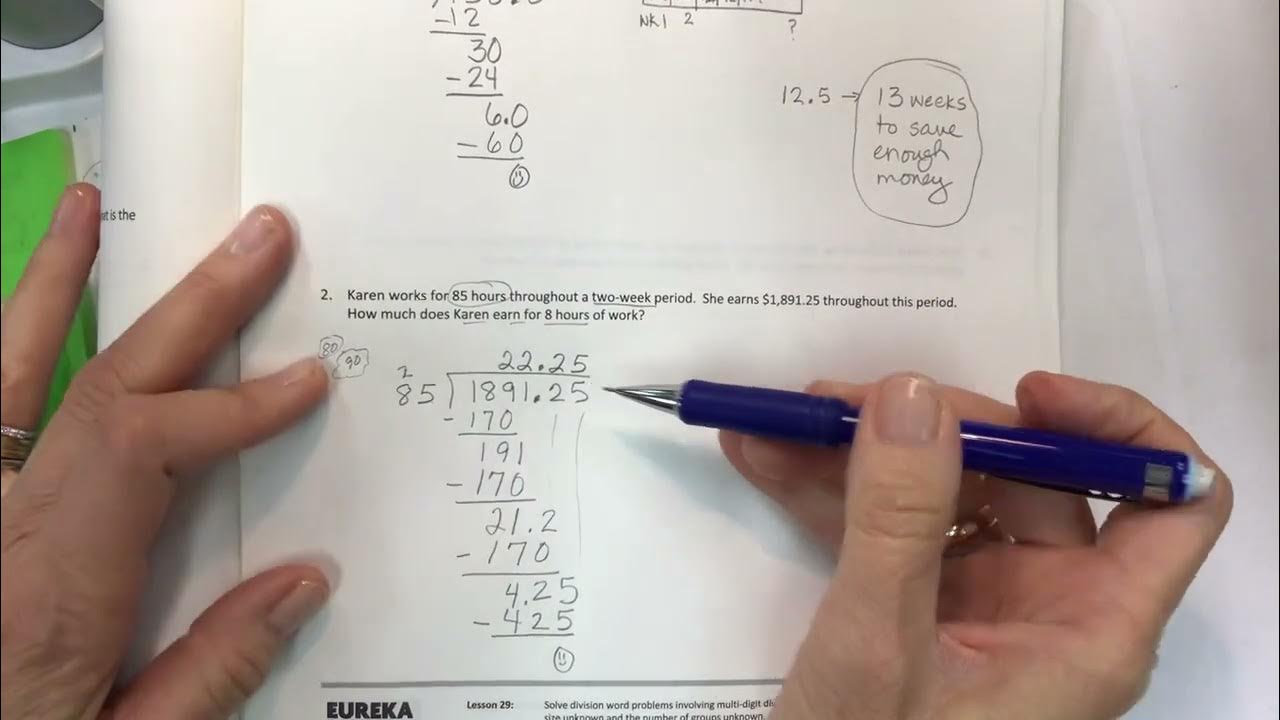 -12
30
-24
6.0
-60
WK 1 2 ?
12.5 → 13 weeks
to save
enough
money
is the
2. Karen works for 85 hours throughout a two-week period. She earns $1,891.25 throughout this period.
How much does Karen earn for 8 hours of work?
80
90
2
22.25
85 1891.25
-170
191
-170
21.2
-170
4.25
-425
EUREKA Lesson 29: Solve division word problems involving multi-digit
size unknown and the number of groups unknown.